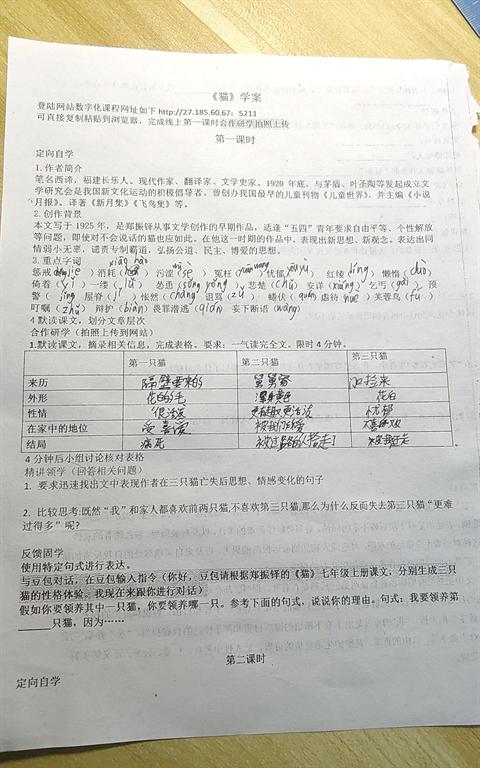 《猫》学案
登陆网站数字化课程网址如下 http://27.185.60.67: 5211
可直接复制粘贴到浏览器，完成线上第一课时合作研学拍照上传
第一课时
定向自学
1. 作者简介
笔名西谛，福建长乐人。现代作家、翻译家、文学史家。1920 年底，与茅盾、叶圣陶等发起成立文
学研究会是我国新文化运动的积极倡导者。曾创办我国最早的儿童刊物《儿童世界》，并主编《小说
月报》。译著《新月集》《飞鸟集》等。
2. 创作背景
本文写于 1925 年，是郑振铎从事文学创作的早期作品，适逢“五四”青年要求自由平等、个性解放
等问题，即使对不会说话的猫也应如此。在他这一时期的作品中，表现出新思想、新观念。表达出同
情弱小无辜，谴责专制霸道，弘扬公道、民主、博爱的思想。
3. 重点字词
惩戒（jie）消耗（xiāo hào）污涩（sè）冤枉（yuān wang）忧郁（yōu yù）红绫（líng）懒惰（duò）
倚着（yǐ）一缕（lǚ）怂恿（sǒng yǒng）悲楚（chǔ）安详（xiáng）乞丐（gài）预
警（jǐng）屋脊（jǐ）怅然（chàng）诅骂（zǔ）蜷伏（quán）虐待（nüe）芙蓉鸟（fú）
叮嘱（zhǔ）辩护（biàn）畏罪潜逃（qián）妄下断语（wàng）
4 默读课文，划分文章层次
合作研学（拍照上传到网站）
1.默读课文，摘录相关信息，完成表格。要求：一气读完全文。限时 4 分钟。
第一只猫 第二只猫 第三只猫
来历 隔壁要来的 舅舅家 捡来
外形 花白的毛 浑身黄色 花白
性情 很活泼 更有趣更活泼 忧郁
在家中的地位 受喜爱 不喜欢
结局 病死 被过路的人捉走了
4 分钟后小组讨论核对表格
精讲领学（回答相关问题）
1. 要求迅速找出文中表现作者在三只猫亡失后思想、情感变化的句子
2. 比较思考:既然“我”和家人都喜欢前两只猫,不喜欢第三只猫,那么为什么反而失去第三只猫“更难
过得多”呢?
反馈固学
使用特定句式进行表达。
与豆包对话，在豆包输入指令（你好，豆包请根据郑振铎的《猫》七年级上册课文，分别生成三只
猫的性格体验。我现在来跟你进行对话）
假如你要领养其中一只猫，你要领养哪一只。参考下面的句式，说说你的理由。句式：我要领养第
______只猫，因为……
第二课时
定向自学